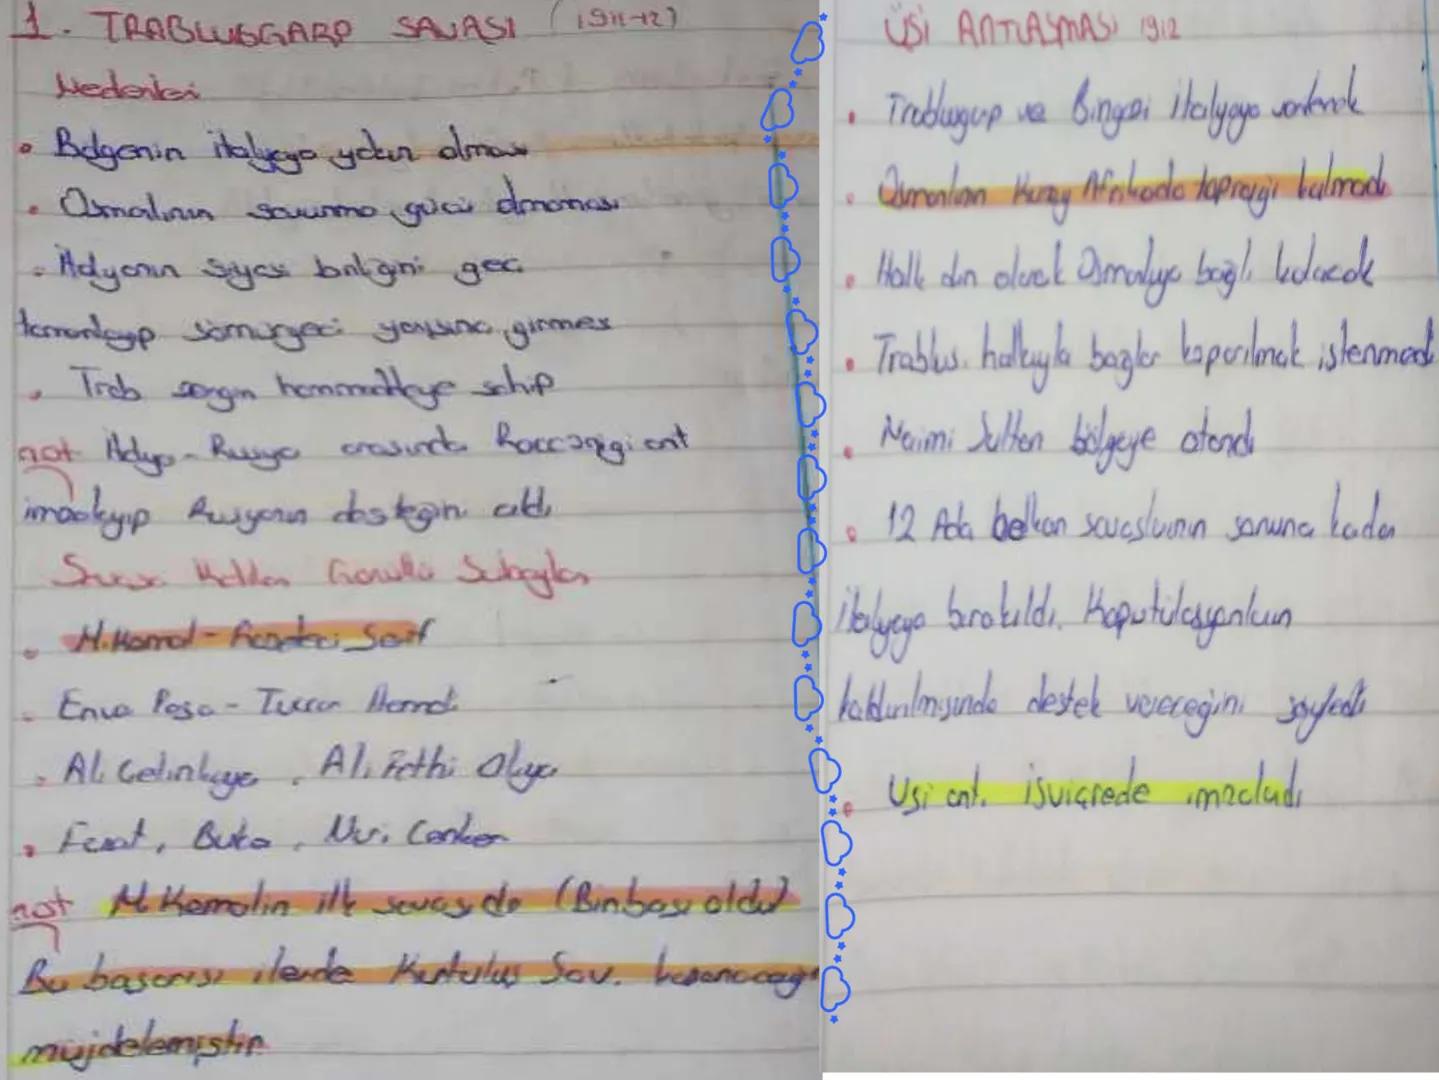 1. TRABLUSGARP SAVAŞI (1911-12)
Nedenleri
• Bölgenin italyaya yakın olması
• Osmalının savunma gücü olmaması
• İtalyanın siyasi birliğini geç
tamamlayıp sömürgeci yarışına girmesi
• Trab zengin hammaddeye sahip
not İtalya - Rusya arasında Raccongigi ant
imzalayıp Rusyanın desteğini aldı
Savaşa Katılan Gönüllü Subaylar
• M.Kemal - Gazeteci Şerif
• Enver Paşa -
• Ali Çetinkaya, Ali Fethi Okyar
• Fuat, Nuri Conker
not M Kemalin ilk savaşıdır (Binbaşı oldu)
Bu başarısı ilerde Kurtuluş Sav. kazanacağı
müjdelemiştir
UŞİ ANTLAŞMASI 1912
• Trablusgarp ve Bingazi italyaya verilecek
• Osmanlının Kuzey Afrikada toprağı kalmadı
• Halk din olarak Osmalıya bağlı kalacak
• Trablus halkıyla bağlar koparılmak istenmedi
• Naimi Sultan bölgeye atandı
• 12 Ada balkan savaşlarının sonuna kadar
italyaya bırakıldı. Kapütülasyonların
kaldırılmasında destek vereceğini söyledi
• Uşi ant. isviçrede imzalandı